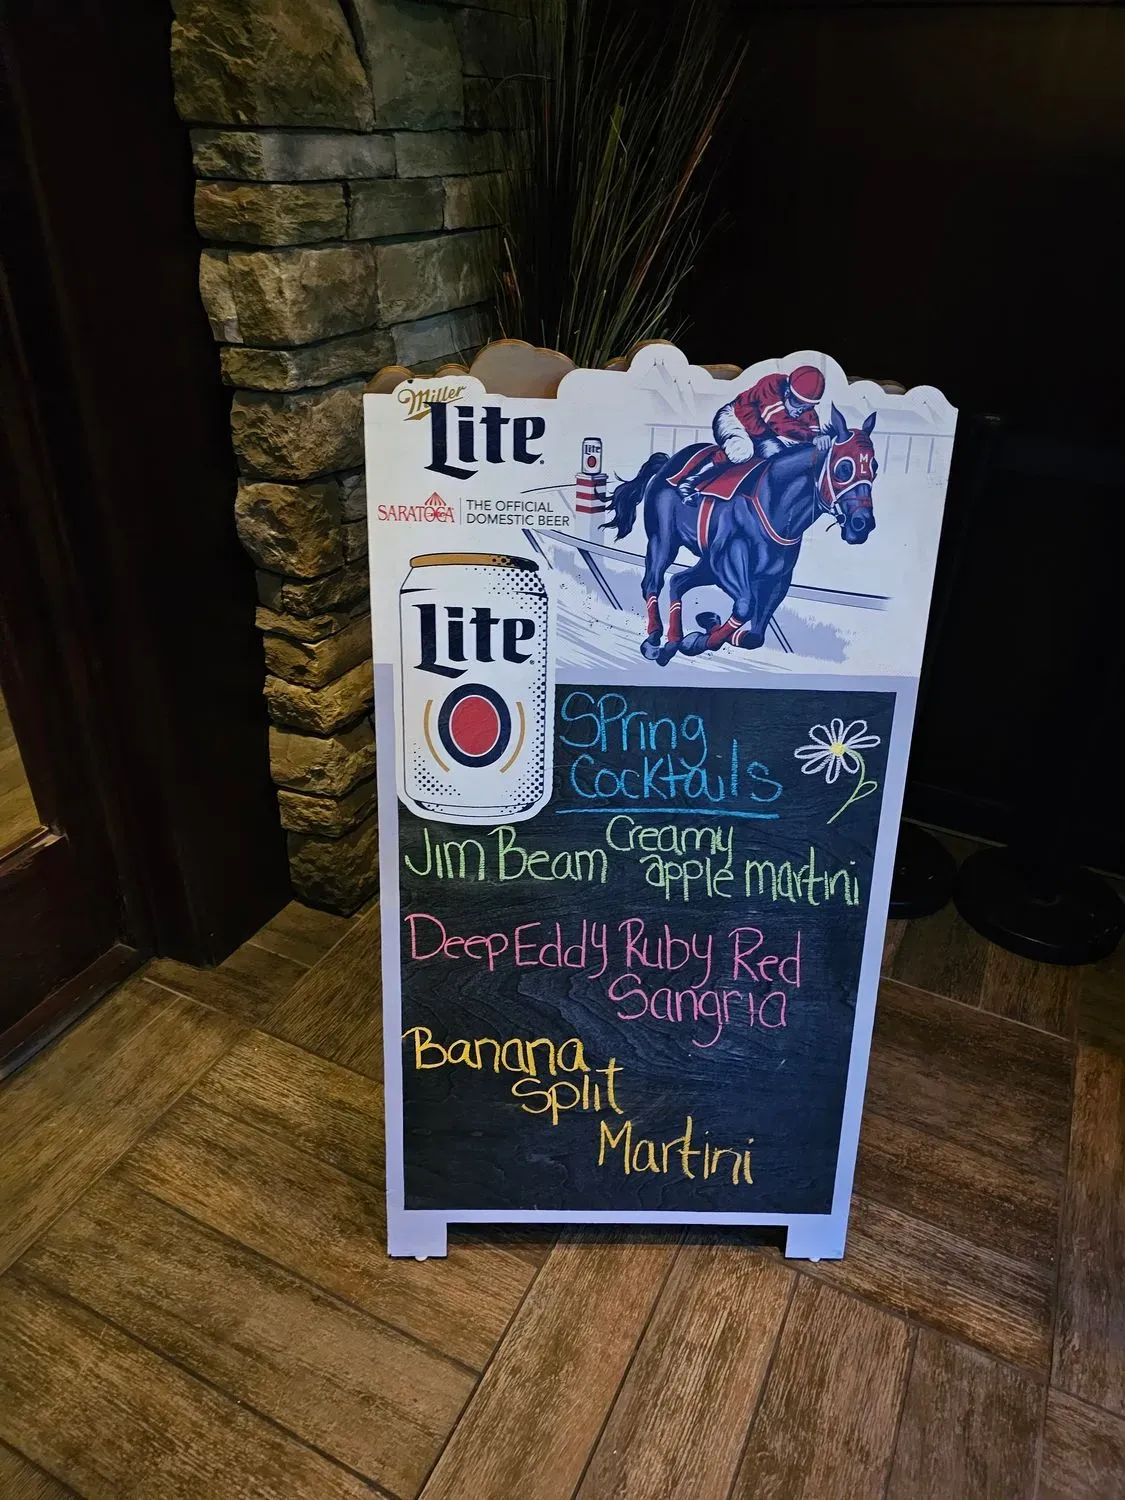 Miller
Lite
SARATOGA | THE OFFICIAL
DOMESTIC BEER
Lite
M
L
Lite
SPring
Cocktails
Jim Beam Creamy
apple martini
Deep Eddy Ruby Red
Sangria
Banana
Split
Martini